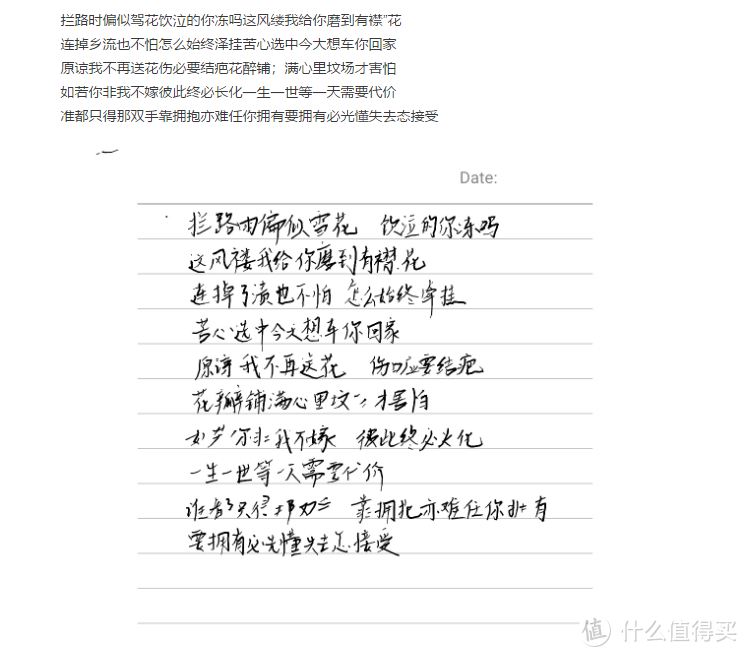 拦路时偏似驾花饮泣的你冻吗这风缕我给你磨到有襟”花
连掉乡流也不怕怎么始终泽挂苦心选中今大想车你回家
原谅我不再送花伤必要结疤花醉铺；满心里坟场才害怕
如若你非我不嫁彼此终必长化一生一世等一天需要代价
准都只得那双手靠拥抱亦难任你拥有要拥有必光懂失去态接受
Date:
拦路雨偏似雪花 饮泣的你冻吗
这风褛我给你磨到有襟花
连掉了渍也不怕 怎么始终牵挂
苦心选中今天想车你回家
原谅我不再送花 伤口应要结疤
花瓣铺满心里坟 才害怕
如若你非我不嫁 彼此终必火化
一生一世等一天需要代价
谁都只得那双 靠拥抱亦难任你拥有
要拥有必先懂失去怎接受
值 什么值得买